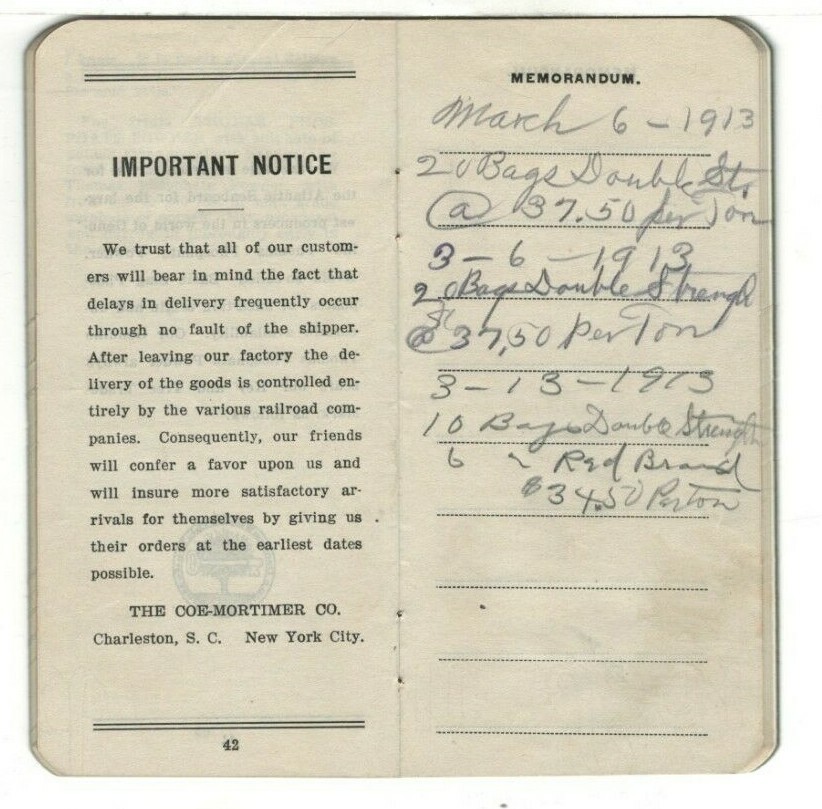 IMPORTANT NOTICE
We trust that all of our custom-
ers will bear in mind the fact that
delays in delivery frequently occur
through no fault of the shipper.
After leaving our factory the de-
livery of the goods is controlled en-
tirely by the various railroad com-
panies. Consequently, our friends
will confer a favor upon us and
will insure more satisfactory ar-
rivals for themselves by giving us
their orders at the earliest dates
possible.
THE COE-MORTIMER CO.
Charleston, S. C. New York City.
42
MEMORANDUM.
March 6 - 1913
20 Bags Double St.
@ 37.50 per Ton
3 - 6 - 1913
20 Bags Double Strength
@ 37,50 per Ton
3 - 13 - 1913
10 Bags Double Strength
6 " Red Brand
$34.50 Per ton